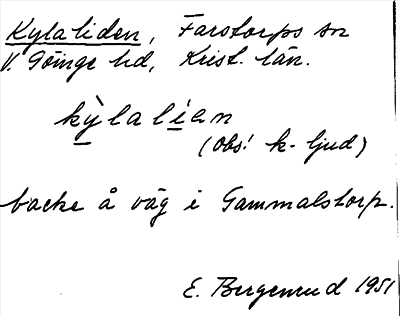 Kylaliden, Farstorps sn
V. Göinge hd, Krist. län.
kỳlalían
(obs! k-ljud)
backe å väg i Gammalstorp.
E. Bergenrud 1951